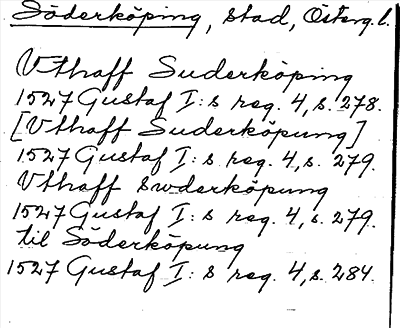 Söderköping, stad, Österg. l.
Vthaff Suderköping
1527 Gustaf I:s reg. 4, s. 278.
[Vthaff Suderköpung]
1527 Gustaf I:s reg. 4, s. 279.
Vthaff Swderköpung
1527 Gustaf I:s reg. 4, s. 279.
til Söderköpung
1527 Gustaf I:s reg. 4, s. 284.